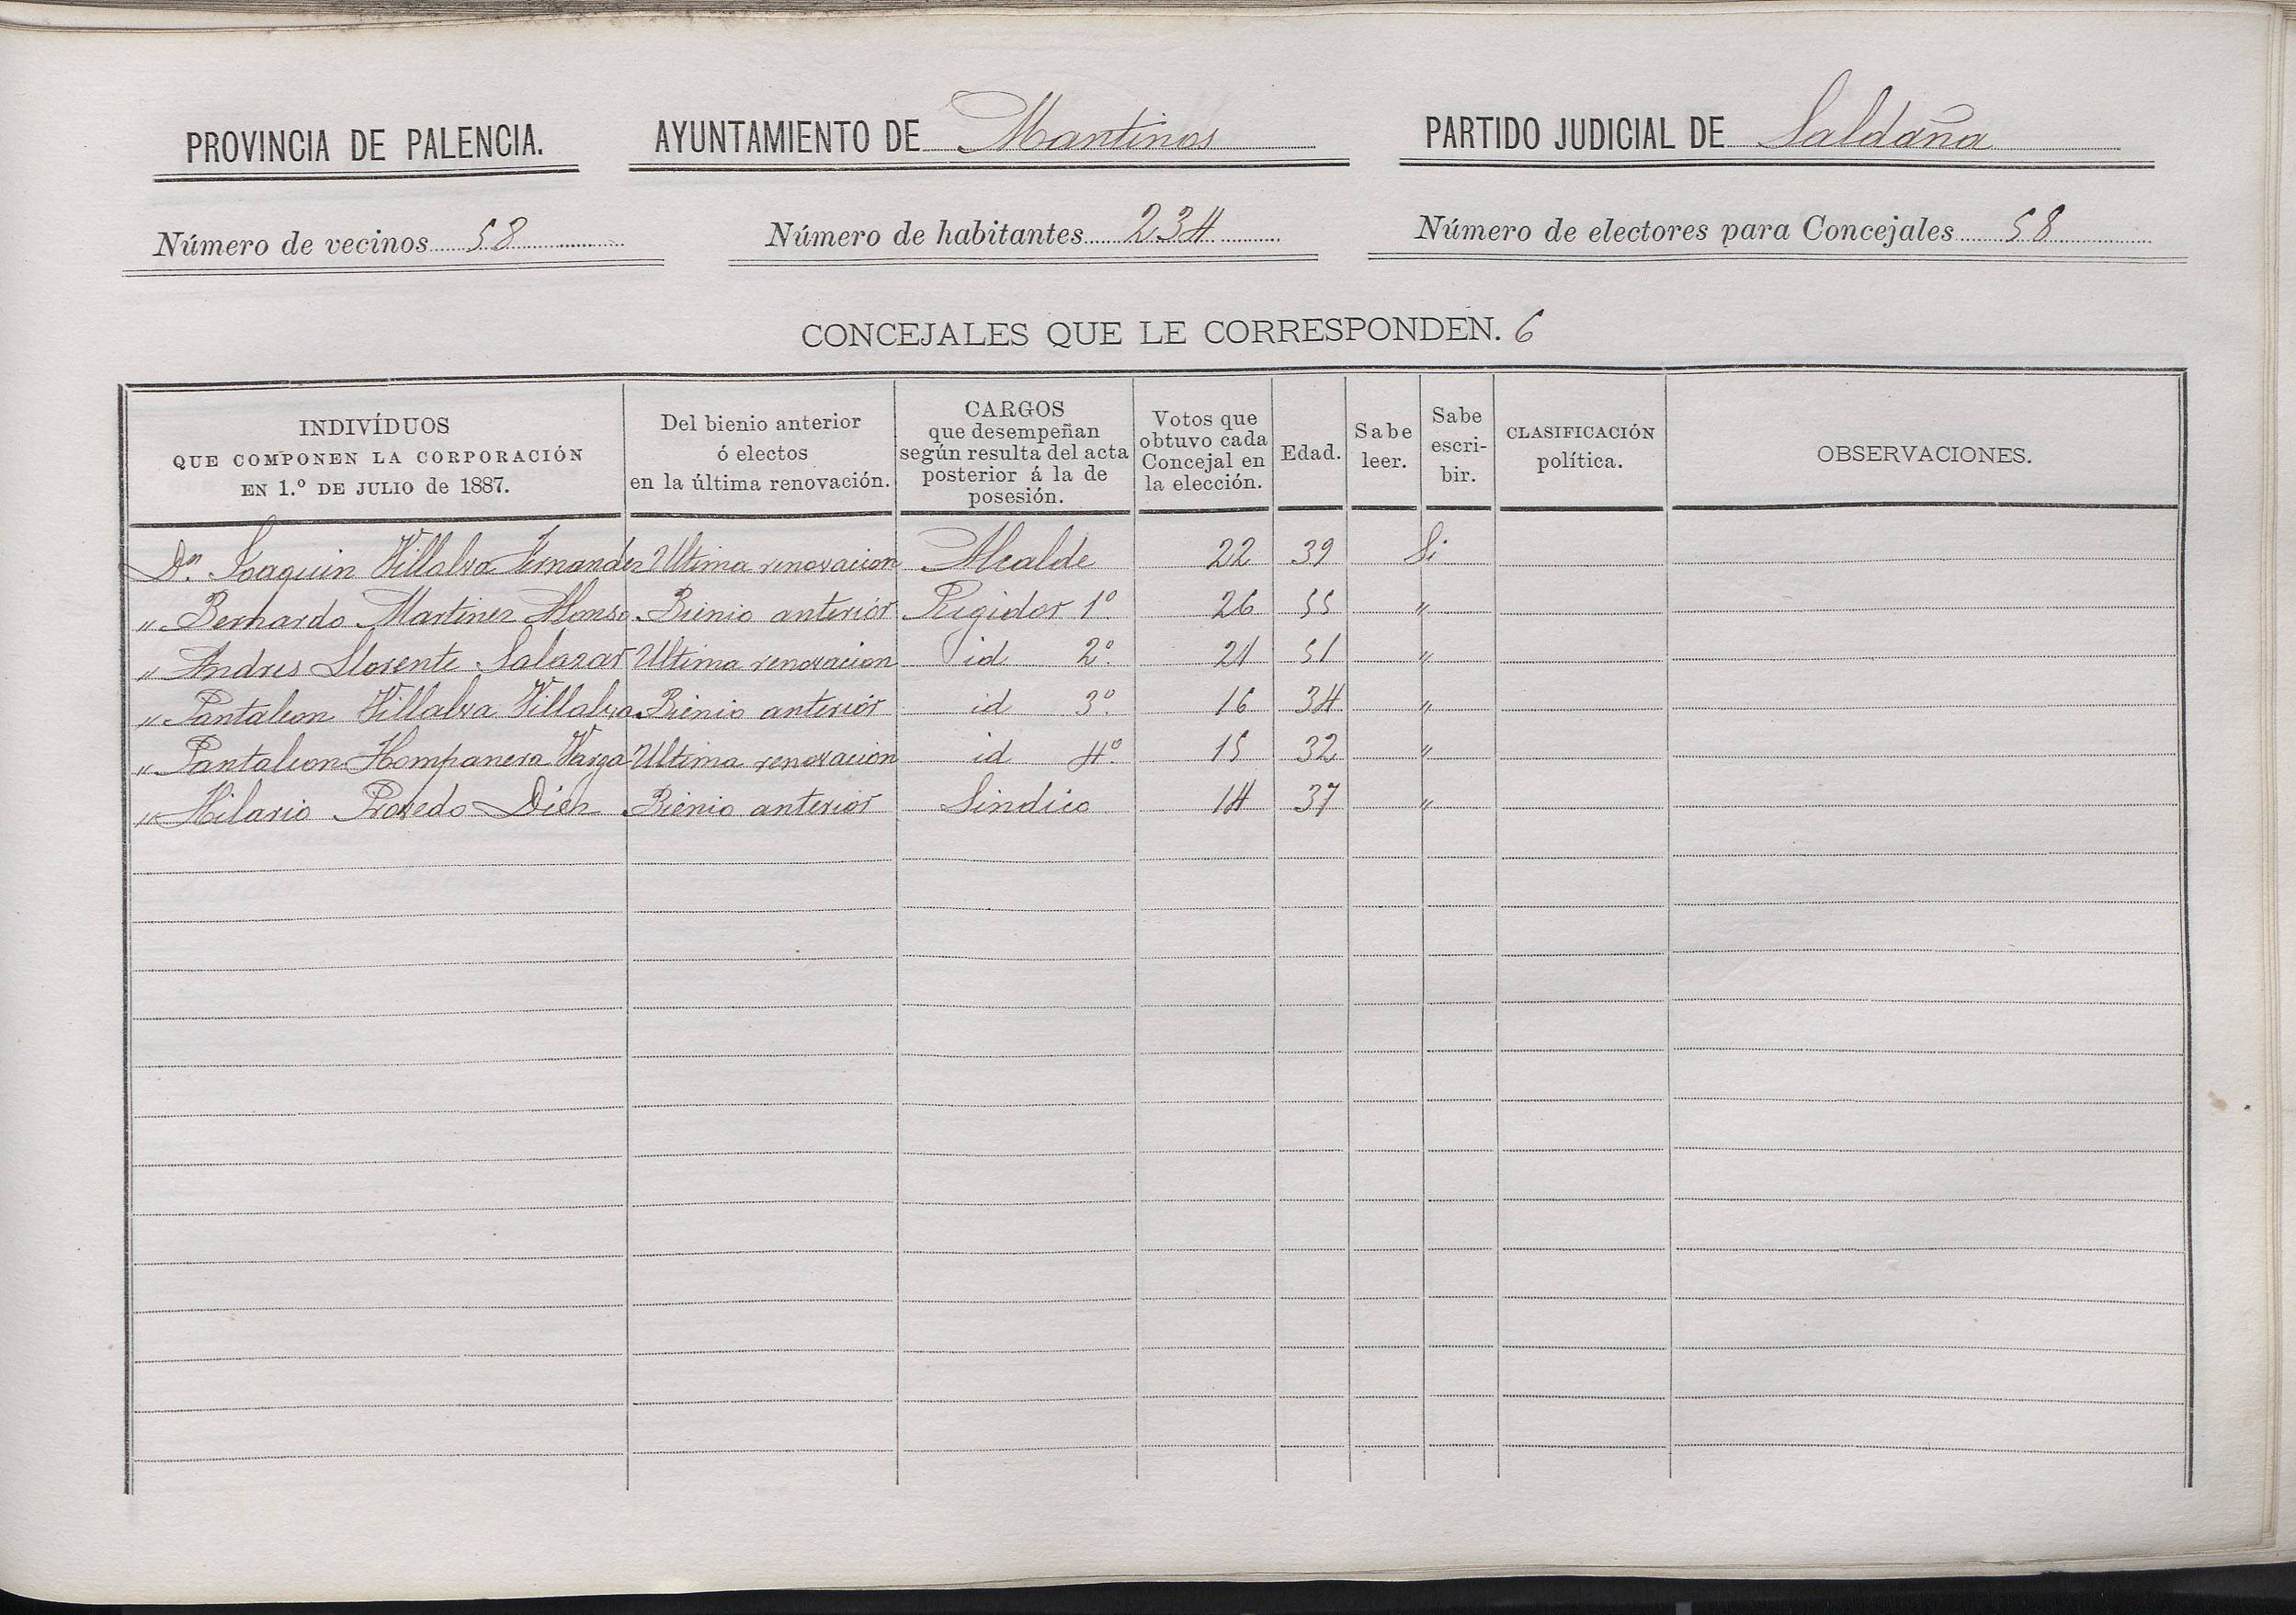 PROVINCIA DE PALENCIA. AYUNTAMIENTO DE Mantinos PARTIDO JUDICIAL DE Saldaña
Número de vecinos 58 Número de habitantes 234 Número de electores para Concejales 58
CONCEJALES QUE LE CORRESPONDEN. 6
INDIVÍDUOS
QUE COMPONEN LA CORPORACIÓN
EN 1.º DE JULIO de 1887.
Del bienio anterior
ó electos
en la última renovación.
CARGOS
que desempeñan
según resulta del acta
posterior á la de
posesión.
Votos que
obtuvo cada
Concejal en
la elección.
Edad.
Sabe
leer.
Sabe
escri-
bir.
CLASIFICACIÓN
política.
OBSERVACIONES.
Dn. Joaquin Villalva Fernandez Ultima renovacion Alcalde 22 39 Si
" Bernardo Martinez Alonso Bienio anterior Rigidor 1º. 26 55 "
" Andres Llorente Salazar Ultima renovacion id 2º. 21 51 "
" Pantaleon Villalva Villalva Bienio anterior id 3º. 16 34 "
" Pantaleon Hompanera Ultima renovacion id 4º. 15 32 "
" Hilario Provedo Diez Bienio anterior Sindico 14 37 "